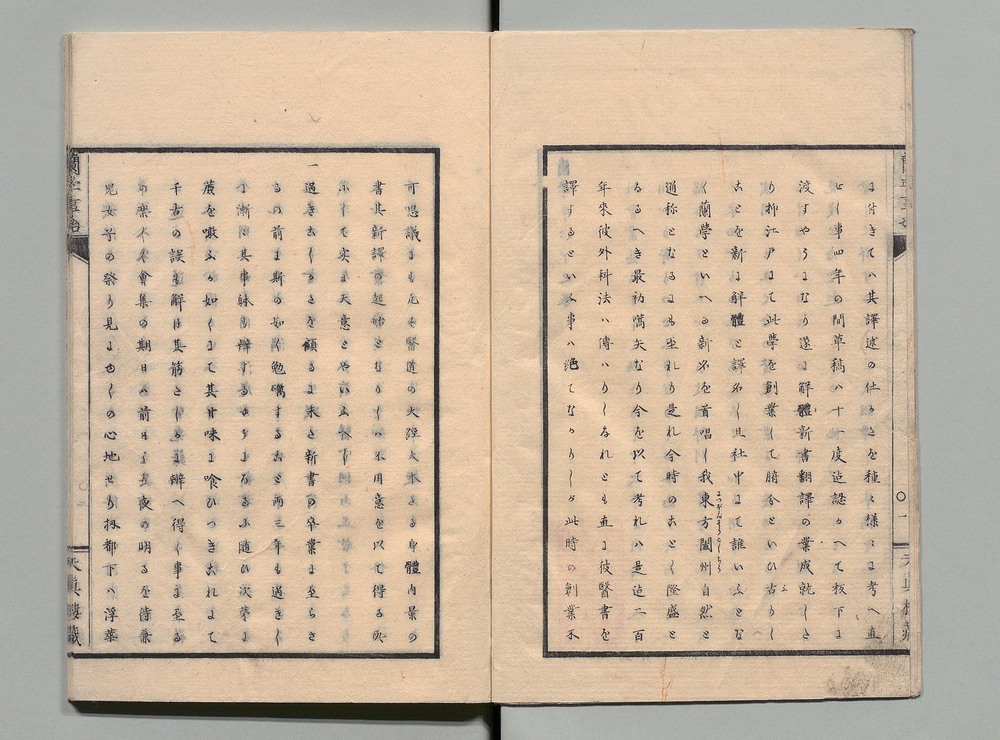 に付きてハ其譯述の仕かさを種々様々に考へ直
せし事四年の間草稿ハ十一度迠認かへて板下に
渡すやうになり遂に解體新書翻譯の業成就しき
り抑江戸にて此學を創業して腑分といひ古りし
ことを新に解體と譯名し且社中にて誰いふとな
く蘭學といへる新名を首唱し我東方闔州自然と
通称となるにも至れり是れ今時のことく隆盛と
なるへき最初嚆矢なり今を以て考れハ是迠二百
年来彼外科法ハ傳ハりしなれとも直に彼醫書を
譯するといふ事ハ絶てなかりしか此時の創業不
可思議にも凡そ醫道の大經大本たる身體内景の
書其新譯の起始となりしハ不用意を以て得る処
にして実に天意とやいふへし
一 過き去しかさを顧るに未さ新書の卒業に至らさ
るの前に斯の如く勉礪すること両三年も過きし
に漸々其事躰も辨するやうになるに随ひ次第に
蔗を噉ふか如くにて其甘味に喰ひつきこれにて
千古の誤も解け其筋たしかに辨へ得し事に至る
の楽く会集の期日ハ前日より夜の明るを待兼
児女子の祭り見にゆくの心地せり扨都下ハ浮華
蘭學事始
〇一
天真樓蔵
蘭學事始
〇二
天真樓蔵